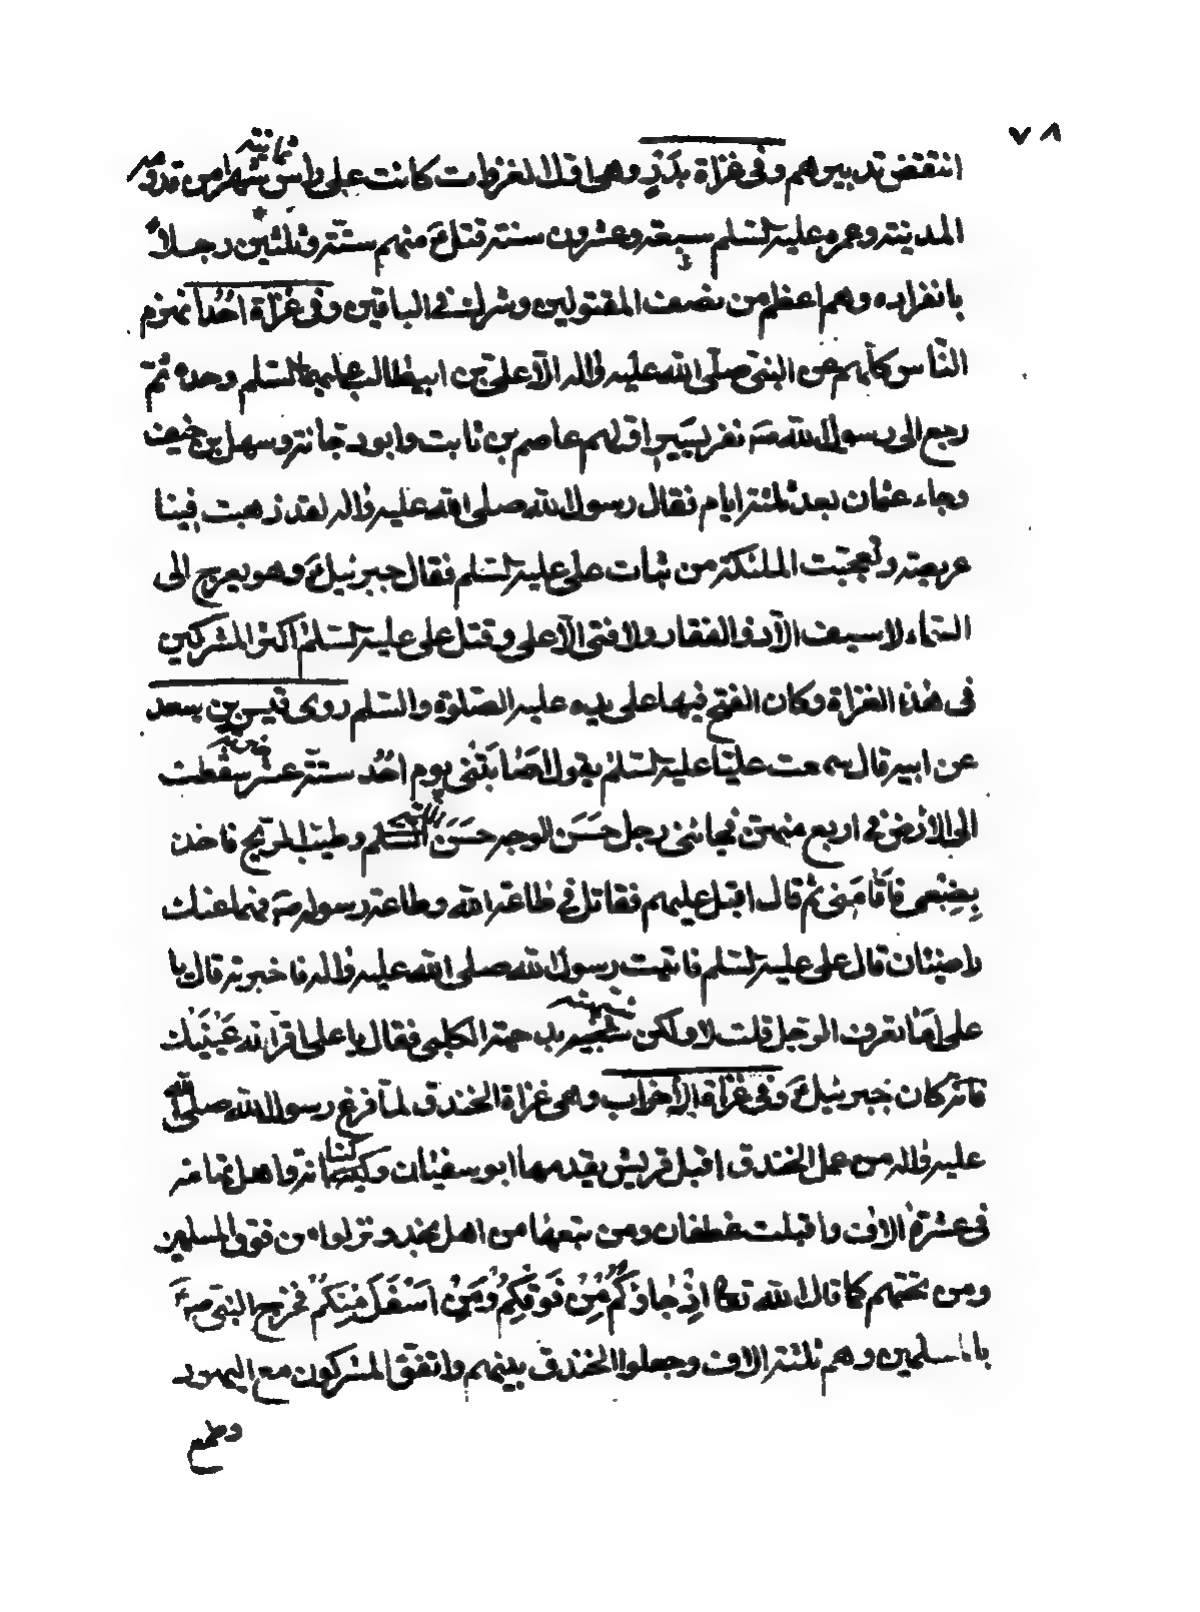 ٧٨
انتقض تدبيرهم وفى غزاة بدر وهى اول الغزوات كانت على راس ثمانية شهرا من قدومه
المدينة وعمره عليه السلم سبعة وعشرون سنة قتل ع منهم ستة وثلثين رجلا
بانفراده وهم اعظم من نصف المقتولين وشرك فى الباقين وفى غزاة احد انهزم
الناس كلهم عن النبى صلى الله عليه واله الا على بن ابيطالب عليهما السلم وحده ثم
رجع الى رسول الله صه نفر يسير اولهم عاصم بن ثابت وابو دجانة وسهل بن حنيف
وجاء عثمان بعد ثلثة ايام فقال رسول الله صلى الله عليه واله لقد ذهبت فينا
عريضة وتعجبت الملئكة من ثبات على عليه السلم فقال جبرئيل ع وهو يعرج الى
السماء لا سيف الا ذو الفقار ولا فتى الا على وقتل على عليه السلم اكثر المشركين
فى هذه الغزاة وكان الفتح فيها على يده عليه الصلوة والسلم روى قيس بن سعد
عن ابيه قال سمعت عليا عليه السلم يقول اصابتنى يوم احد ستة عشر ضربة سقطت
الى الارض فى اربع منهن فجائنى رجل حسن الوجه حسن اللمة السلم وطيب الريح فاخذ
بضبعى فاقامنى ثم قال اقبل عليهم فقاتل فى طاعة الله وطاعة رسوله صه فهما عنك
راضيان قال على عليه السلم فاتيت رسول الله صلى الله عليه واله فاخبرته قال يا
على اما تعرف الرجل قلت لا ولكن شبهته بدحية الكلبى فقال يا على اقر الله عينيك
فانه كان جبرئيل ع وفى غزاة الاحزاب وهى غزاة الخندق لما فرغ رسول الله صلى الله
عليه واله من عمل الخندق اقبل قريش يقدمها ابو سفيان وكنانة واهل تهامة
فى عشرة الاف واقبلت غطفان ومن تبعها من اهل نجد ونزلوا من فوق المسلمين
ومن تحتهم كما قال الله تعا اذ جاؤكم من فوقكم ومن اسفل منكم فخرج النبى صه
بالمسلمين وهم ثلثة الاف وجعلوا الخندق بينهم واتفق المشركون مع اليهود
وطمع